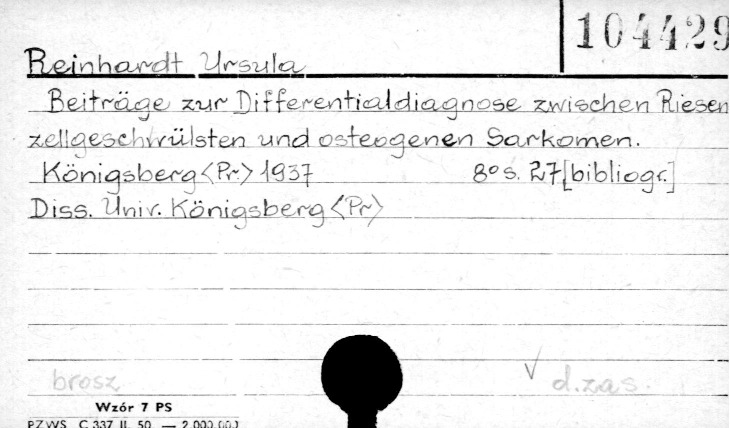 104429
Reinhardt Ursula
Beiträge zur Differentialdiagnose zwischen Riesen
zellgeschwülsten und osteogenen Sarkomen.
Königsberg <Pr> 1937 8° s. 27, [bibliogr.]
Diss. Univ. Königsberg <Pr>
brosz
d.zas.
Wzór 7 PS
PZWS C 337 II. 50. — 2.000.000